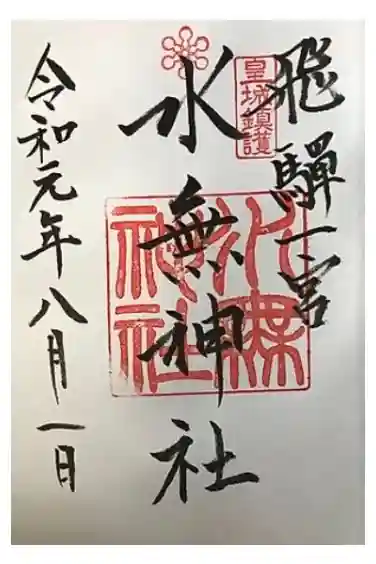 飛驒一宮
皇城鎮護
水無神社
水無神社
令和元年八月一日